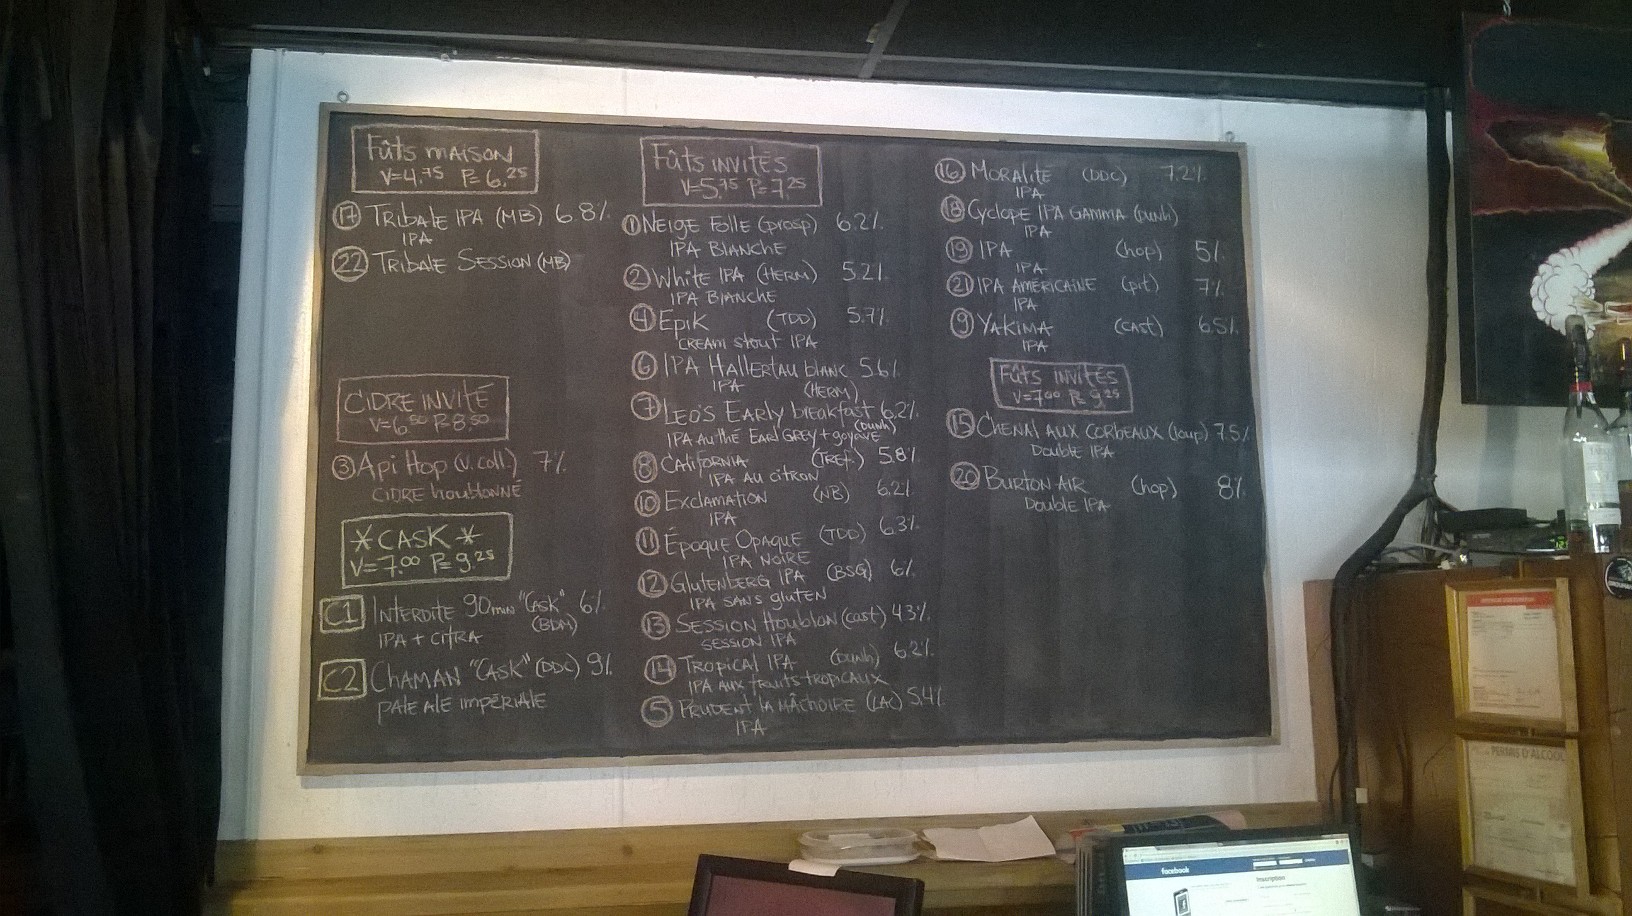 Fûts maison
V=4.75 P=6.25
17 Tribale IPA (MB) 6.8%
IPA
22 Tribale Session (MB)
Cidre invité
V=6.50 P=8.50
3 Api Hop (V. coll.) 7%
cidre houblonné
* CASK *
V=7.00 P=9.25
C1 Interdite 90min "Cask" 6%
(BDM)
IPA + Citra
C2 Chaman "Cask" (DDC) 9%
pale ale impériale
Fûts invités
V=5.75 P=7.25
1 Neige Folle (prosp) 6.2%
IPA Blanche
2 White IPA (HERM) 5.2%
IPA Blanche
4 Epik (TDD) 5.7%
cream stout IPA
6 IPA Hallertau blanc 5.6%
IPA (HERM)
7 Leo's Early breakfast 6.2%
(Dunh)
IPA au thé Earl Grey + goyave
8 California (Tref.) 5.8%
IPA au citron
10 Exclamation (NB) 6.2%
IPA
11 Époque Opaque (TDD) 6.3%
IPA Noire
12 Glutenberg IPA (BSG) 6%
IPA sans gluten
13 Session Houblon (cast) 4.3%
session IPA
14 Tropical IPA (Dunh) 6.2%
IPA aux fruits tropicaux
5 Prudent la mâchoire (LAC) 5.4%
IPA
16 Moralité (DDC) 7.2%
IPA
18 Cyclope IPA Gamma (Dunh)
IPA
19 IPA (hop) 5%
IPA
21 IPA Américaine (pit) 7%
IPA
9 Yakima (cast) 6.5%
IPA
Fûts invités
V=7.00 P=9.25
15 Chenal aux corbeaux (loup) 7.5%
Double IPA
20 Burton Air (hop) 8%
Double IPA
PERMIS D'ALCOOL
facebook
Inscription